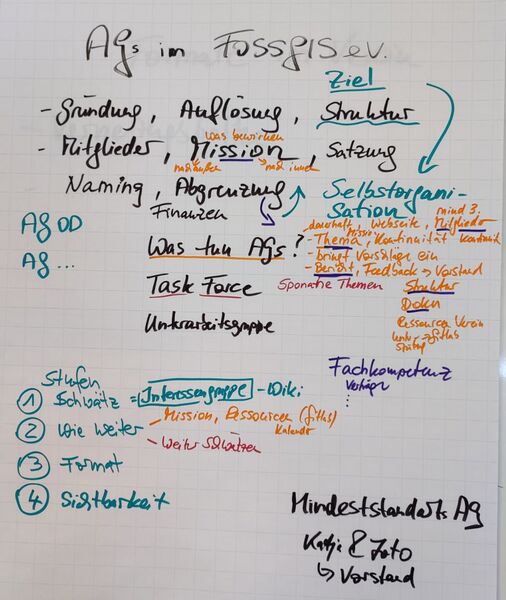 AGs im FOSSGIS e.V.
Ziel
- Gründung, Auflösung, Struktur
was bewirken
- Mitglieder, Mission, Satzung
nach außen nach innen
Naming, Abgrenzung
Selbstorgani-
sation
Finanzen
AG OD
AG ...
Was tun AGs?
Task Force
Unterarbeitsgruppe
dauerhaft Webseite, mind 3.
Mission Mitglieder
- Thema, Kontinuität
- bringt Vorschläge ein
- Bericht, Feedback → Vorstand
Sporadische Themen
Struktur
Doku
Ressourcen Verein
Fachkompetenz
Vorträge
...
Stufen
1 Schwätz = Interessengruppe - Wiki
2 Wie weiter
- Mission, Ressourcen (
Kalender
- Weiter Schwätzen
3 Format
4 Sichtbarkeit
Mindeststandarts AG
Katja & Joto
↳ Vorstand